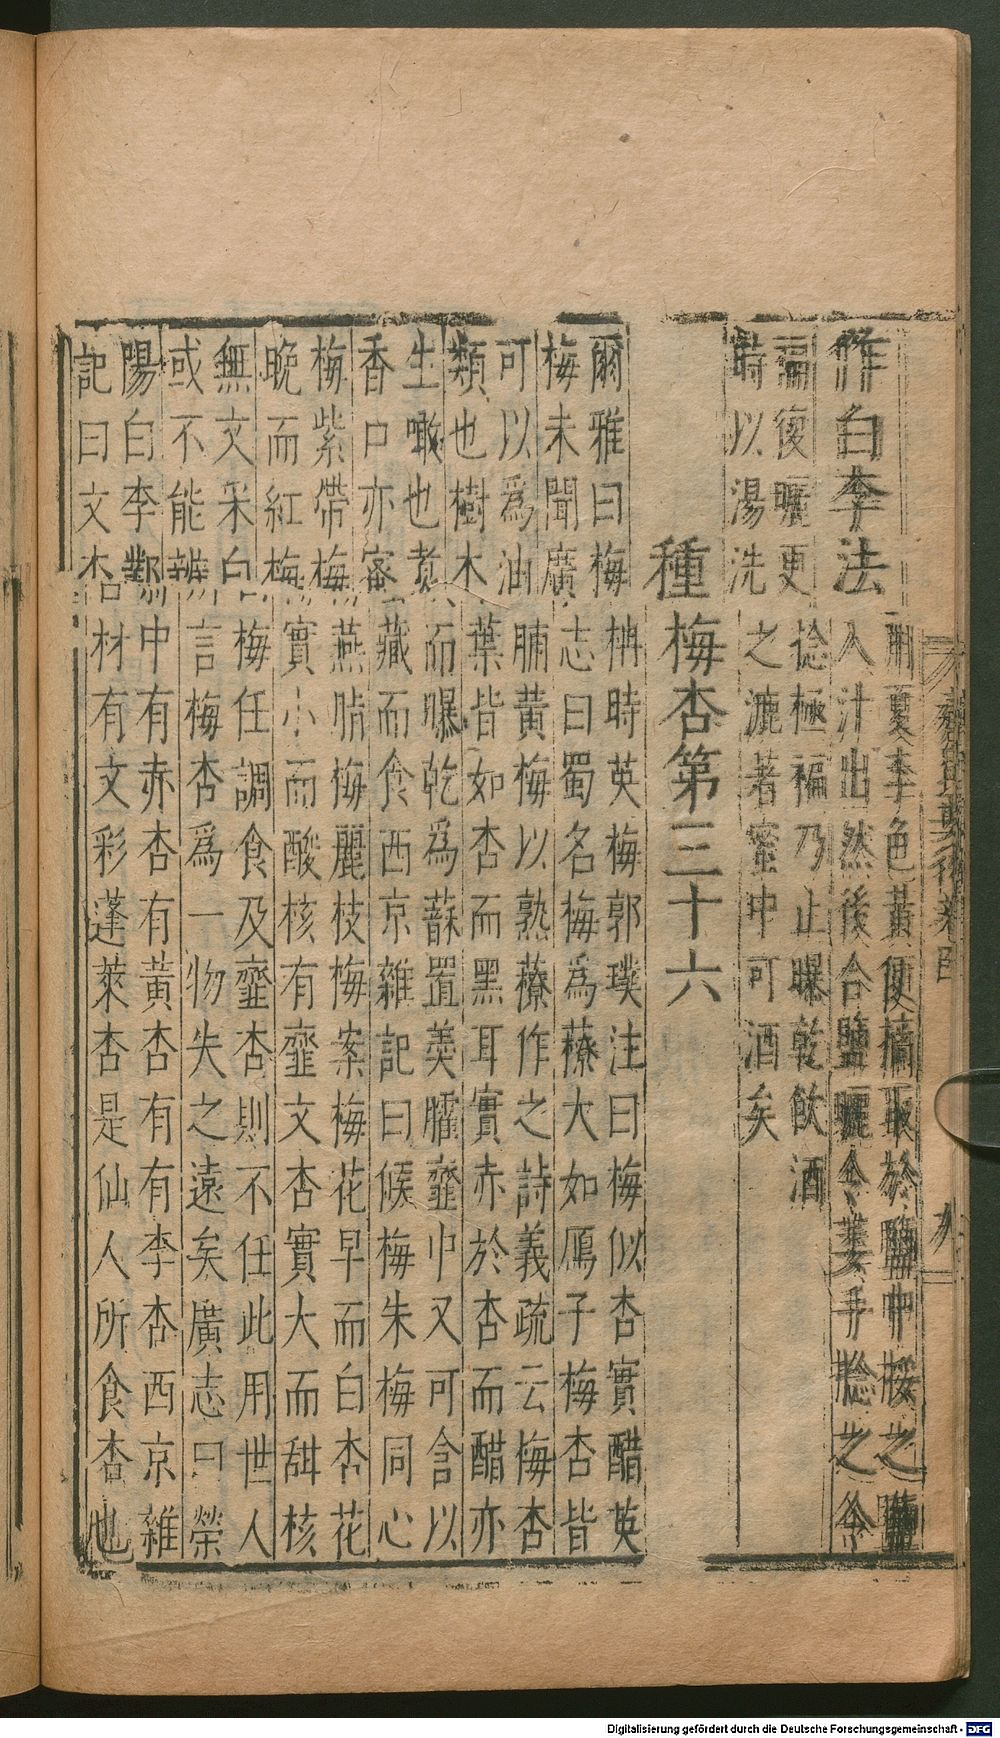 齊民要術卷四
九
作白李法
用夏李色黃便摘取於鹽中挼之鹽
入汁出然後合鹽曬令萎手捻之令
褊復曬更捻極褊乃止曝乾飲酒
時以湯洗之漉著蜜中可酒矣
種梅杏第三十六
爾雅曰梅柟時英梅郭璞注曰梅似杏實醋英
梅未聞廣志曰蜀名梅為䕩大如鴈子梅杏皆
可以為油脯黃梅以熟䕩作之詩義疏云梅杏
類也樹木葉皆如杏而黑耳實赤於杏而醋亦
生噉也煑而曝乾為蘇置羹臛虀中又可含以
香口亦蜜藏而食西京雜記曰候梅朱梅同心
梅紫帶梅燕脂梅麗枝梅案梅花早而白杏花
晚而紅梅實小而酸核有虀文杏實大而甜核
無文采白梅任調食及虀杏則不任此用世人
或不能辨言梅杏為一物失之遠矣廣志曰榮
陽白李鄴中有赤杏有黃杏有有李杏西京雜
記曰文杏材有文彩蓬萊杏是仙人所食杏也
Digitalisierung gefördert durch die Deutsche Forschungsgemeinschaft - DFG